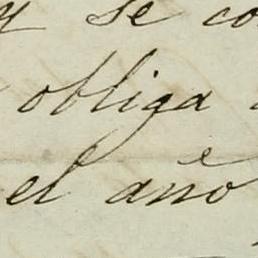 y se co
obliga
el año